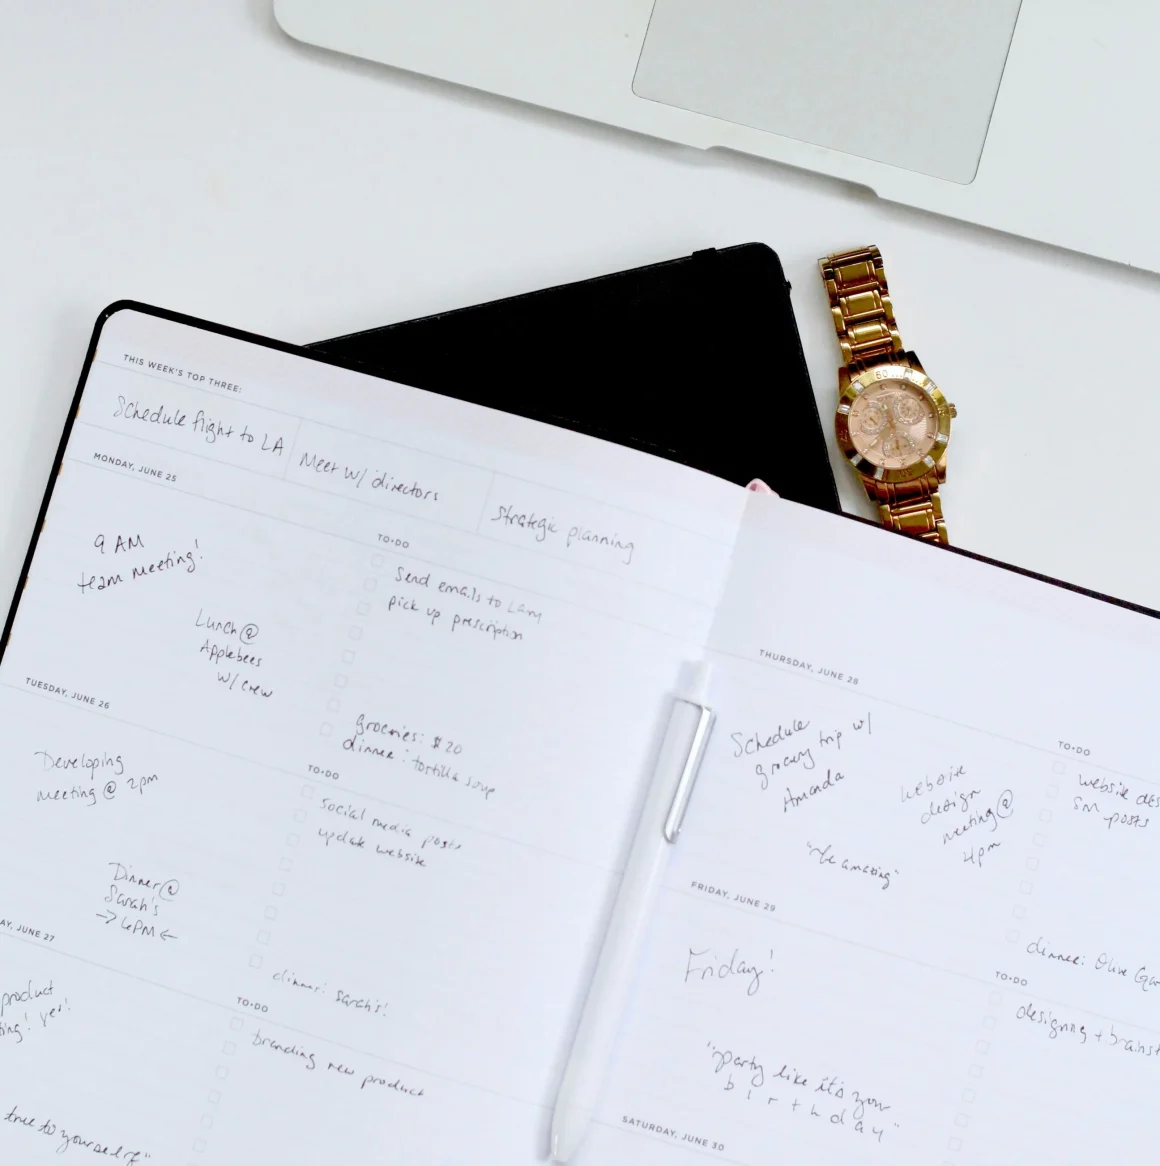 THIS WEEK'S TOP THREE:
Schedule flight to LA
Meet w/ directors
Strategic planning
MONDAY, JUNE 25
9 AM
team meeting!
Lunch @
Applebees
w/ crew
TO•DO
Send emails to Larry
pick up prescription
groceries: $20
dinner: tortilla soup
TUESDAY, JUNE 26
Developing
meeting @ 2pm
Dinner @
Sarah's
→ 6PM ←
TO•DO
social media posts
update website
dinner: Sarah's!
AY, JUNE 27
product
ting! yes!
true to yourself"
TO•DO
branding new product
THURSDAY, JUNE 28
Schedule
grocery trip w/
Amanda
website
design
meeting @
4pm
"be amazing"
TO•DO
website des
sm posts
dinner: Olive Gar
FRIDAY, JUNE 29
Friday!
"party like it's your
birthday"
TO•DO
designing + brainst
SATURDAY, JUNE 30
60